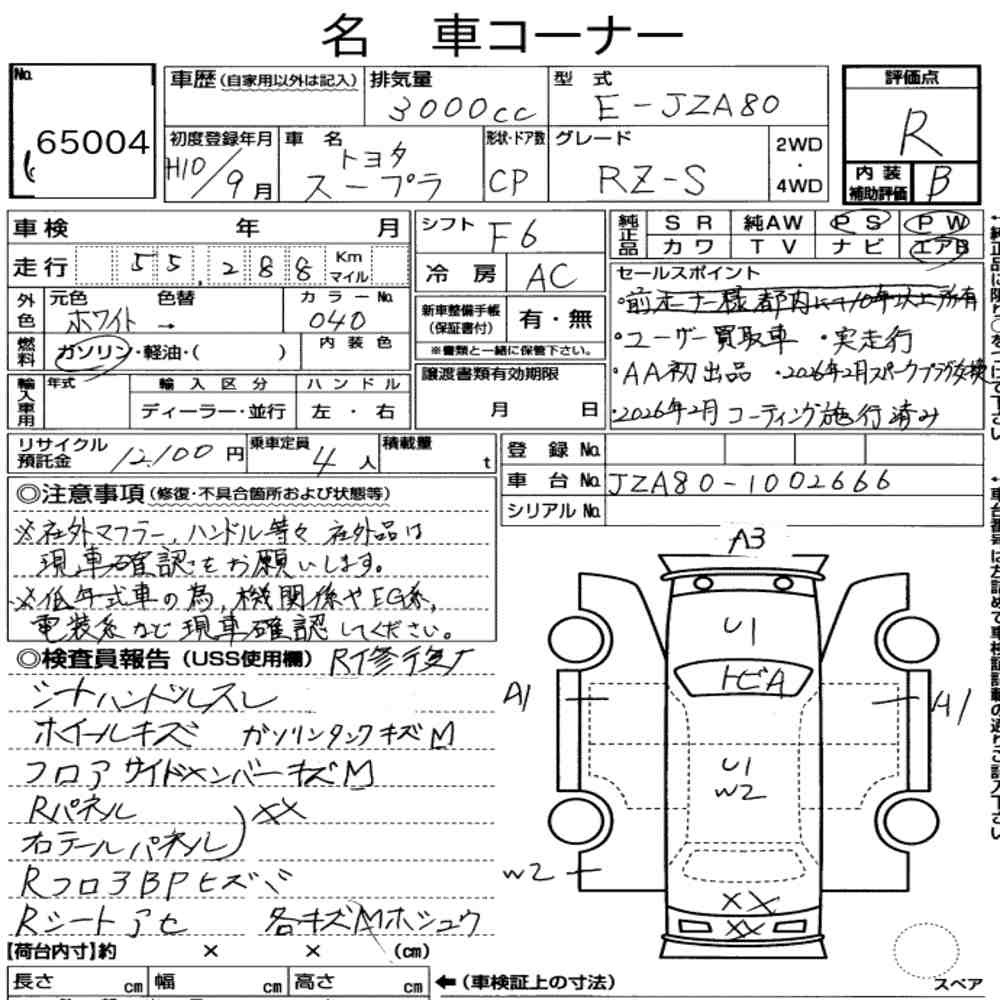 名 車コーナー
No. 65004
車歴(自家用以外は記入)
排気量 3000cc
型式 E-JZA80
評価点 R
初度登録年月 H10/9月
車名 トヨタ スープラ
形状・ドア数 CP
グレード RZ-S
2WD・4WD
内装補助評価 B
車検 年 月
走行 55,288 Km マイル
シフト F6
冷房 AC
純正品 SR 純AW PS PW
カワ TV ナビ エアB
セールスポイント
・前オーナー様都内にて10年以上所有
・ユーザー買取車 ・実走行
・AA初出品 ・2026年2月スパークプラグ交換
・2026年2月 コーティング施行済み
外色 元色 ホワイト → 色替 カラーNo. 040
燃料 ガソリン・軽油・( ) 内装色
新車整備手帳(保証書付) 有・無
※書類と一緒に保管下さい。
輸入車用 年式 輸入区分 ハンドル
ディーラー・並行 左・右
譲渡書類有効期限
月 日
リサイクル預託金 12,100円
乗車定員 4人
積載量 t
登録No.
車台No. JZA80-1002666
シリアルNo.
◎注意事項(修復・不具合箇所および状態等)
※社外マフラー、ハンドル等々 社外品は
現車確認をお願いします。
※低年式車の為、機関係やEG系、
電装系など現車確認してください。
◎検査員報告(USS使用欄) R修復
シートハンドルスレ
ホイールキズ ガソリンタンクキズM
フロアサイドメンバーキズM
Rパネル
右テールパネル XX
RフロアBPヒズ
Rシートアセ 各キズMホシュウ
A3
U1
トビA
A1
A1
U1
W2
W2
XX
XX
【荷台内寸】約 × × (cm)
長さ cm 幅 cm 高さ cm ←(車検証上の寸法)
スペア